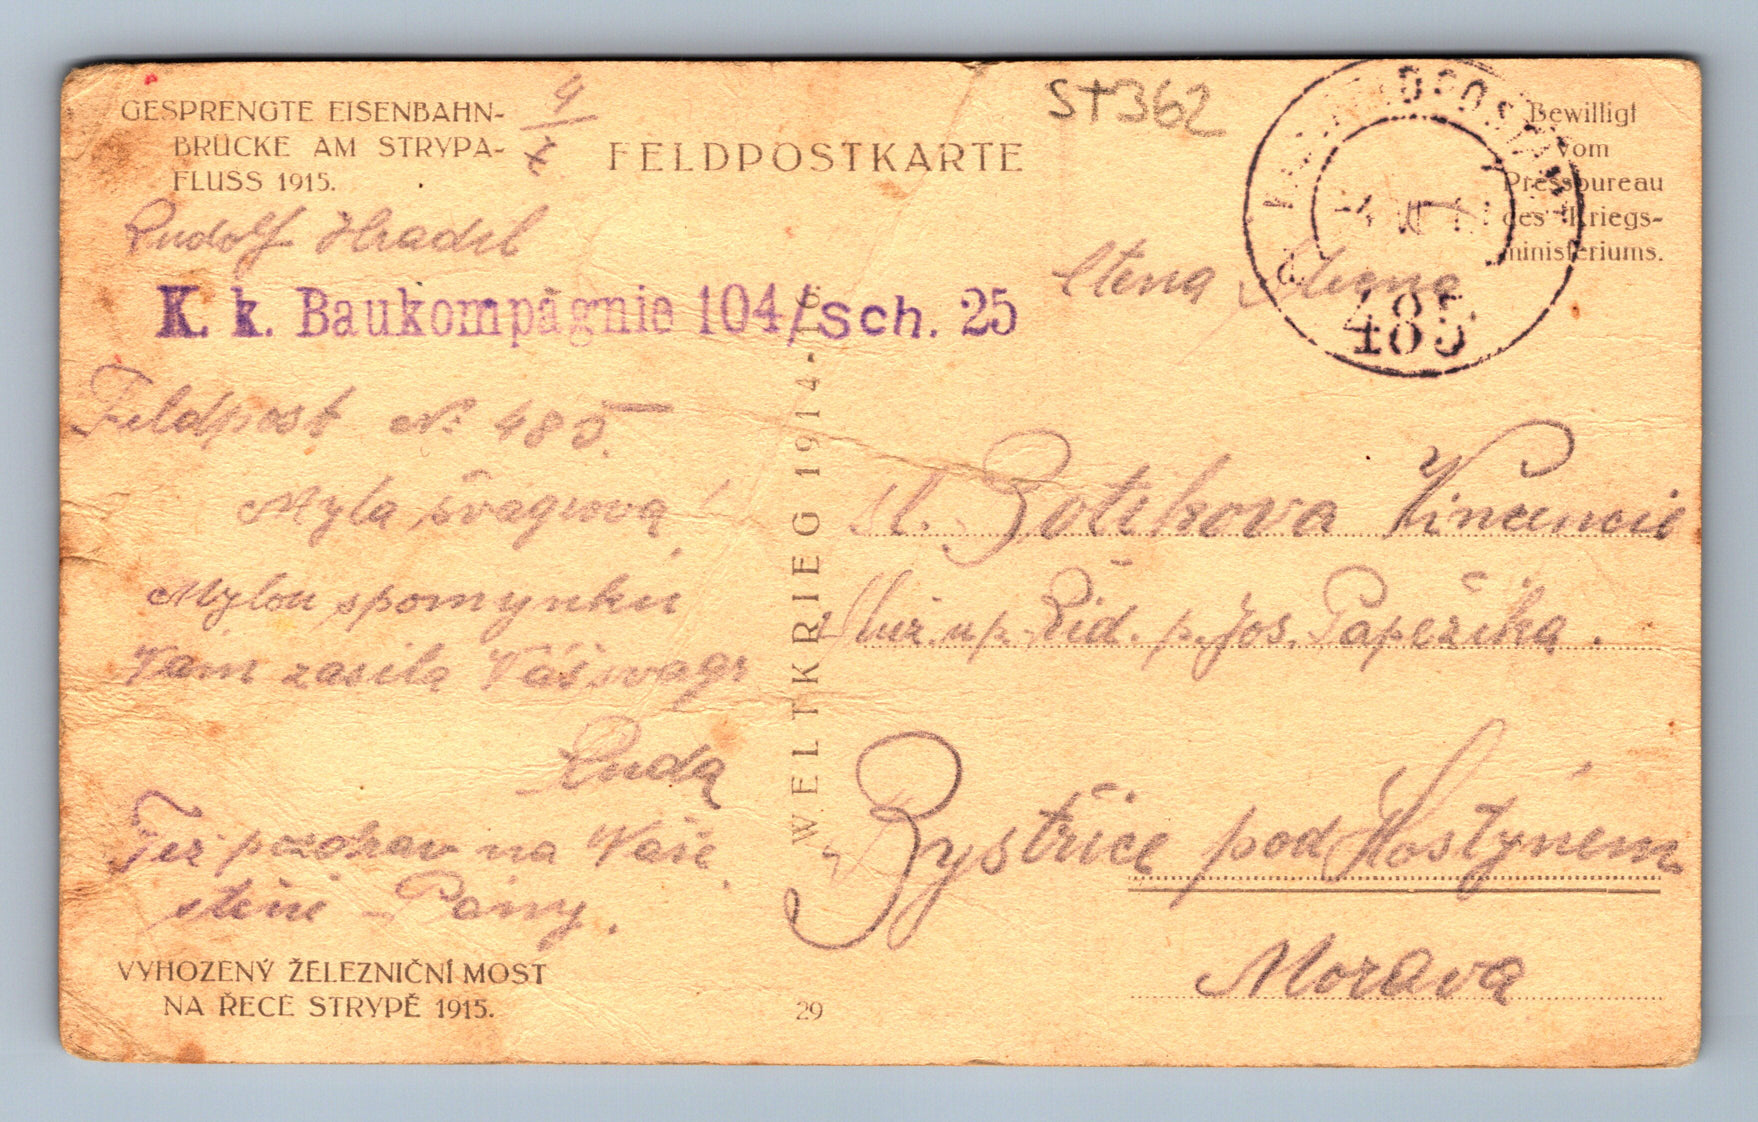 GESPRENGTE EISENBAHN-
BRÜCKE AM STRYPA-
FLUSS 1915.
4/7
FELDPOSTKARTE
ST362
Bewilligt
vom
Pressbureau
des Kriegs-
ministeriums.
485
Rudolf Hradil
K. k. Baukompagnie 104/sch. 25
Feldpost № 485.
Ctena
Mylá švagrová!
Mylou spomynku
Vám zasilá Váš švagr
Ruda
Též pozdrav na Vaše
Pámy.
WELTKRIEG 1914-16.
sl. Botikova Vincencie
p. Jos. Papežíka.
Bystřice pod Hostýnem
Morava
VYHOZENÝ ŽELEZNIČNÍ MOST
NA ŘECE STRYPĚ 1915.
29